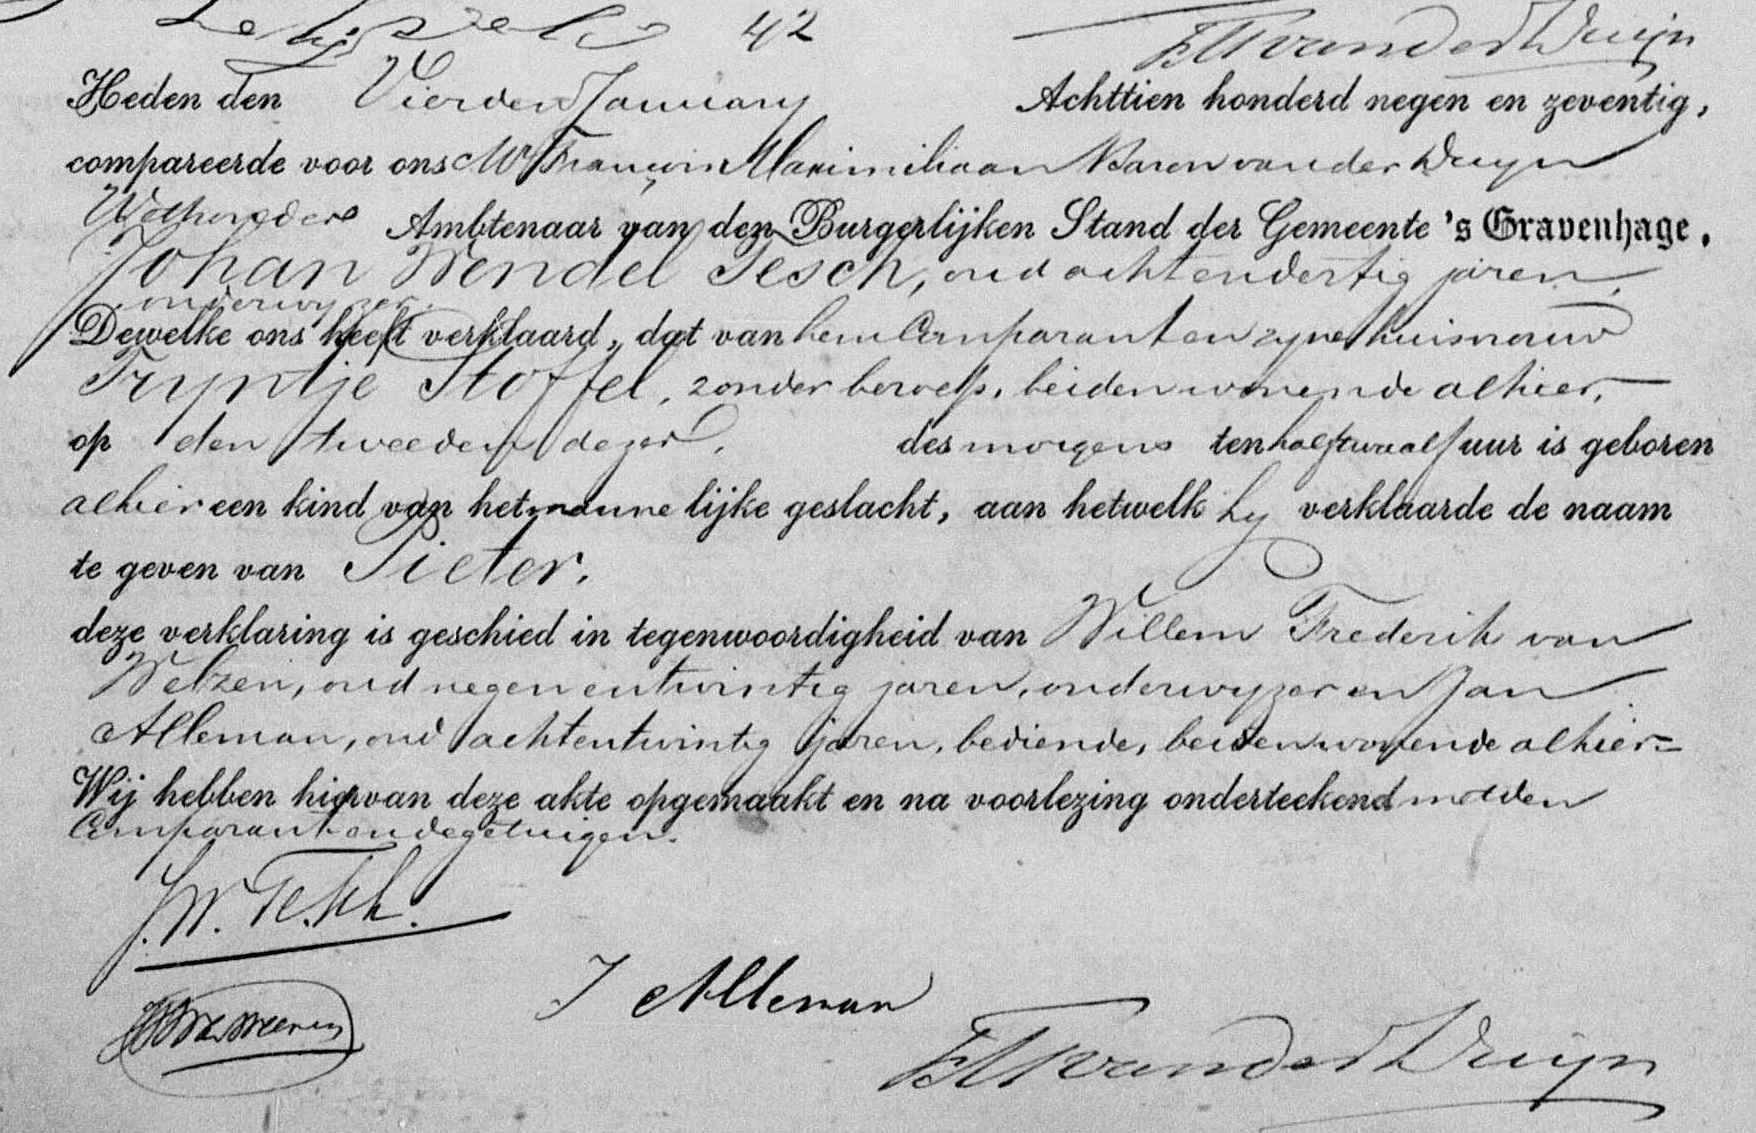 42
FM van der Duijn
Heden den Vierden January Achttien honderd negen en zeventig,
compareerde voor ons Mr François Maximiliaan Baron van der Duyn
Wethouder Ambtenaar van den Burgerlijken Stand der Gemeente 's Gravenhage.
Johan Wendel Tesch, oud achtendertig jaren,
onderwyzer.
Dewelke ons heeft verklaard, dat van hem Comparant en zyne huisvrouw
Tryntje Stoffel, zonder beroep, beiden wonende alhier,
op den tweeden dezer, des morgens ten half twaalf uur is geboren
alhier een kind van het mannelijke geslacht, aan hetwelk hy verklaarde de naam
te geven van Pieter.
deze verklaring is geschied in tegenwoordigheid van Willem Frederik van
Welzen, oud negen en twintig jaren, onderwyzer en Jan
Alleman, oud achtentwintig jaren, bediende, beiden wonende alhier.
Wij hebben hiervan deze akte opgemaakt en na voorlezing onderteekend met den
Comparant en de getuigen.
J.W. Tesch.
J Alleman
FM van der Duijn